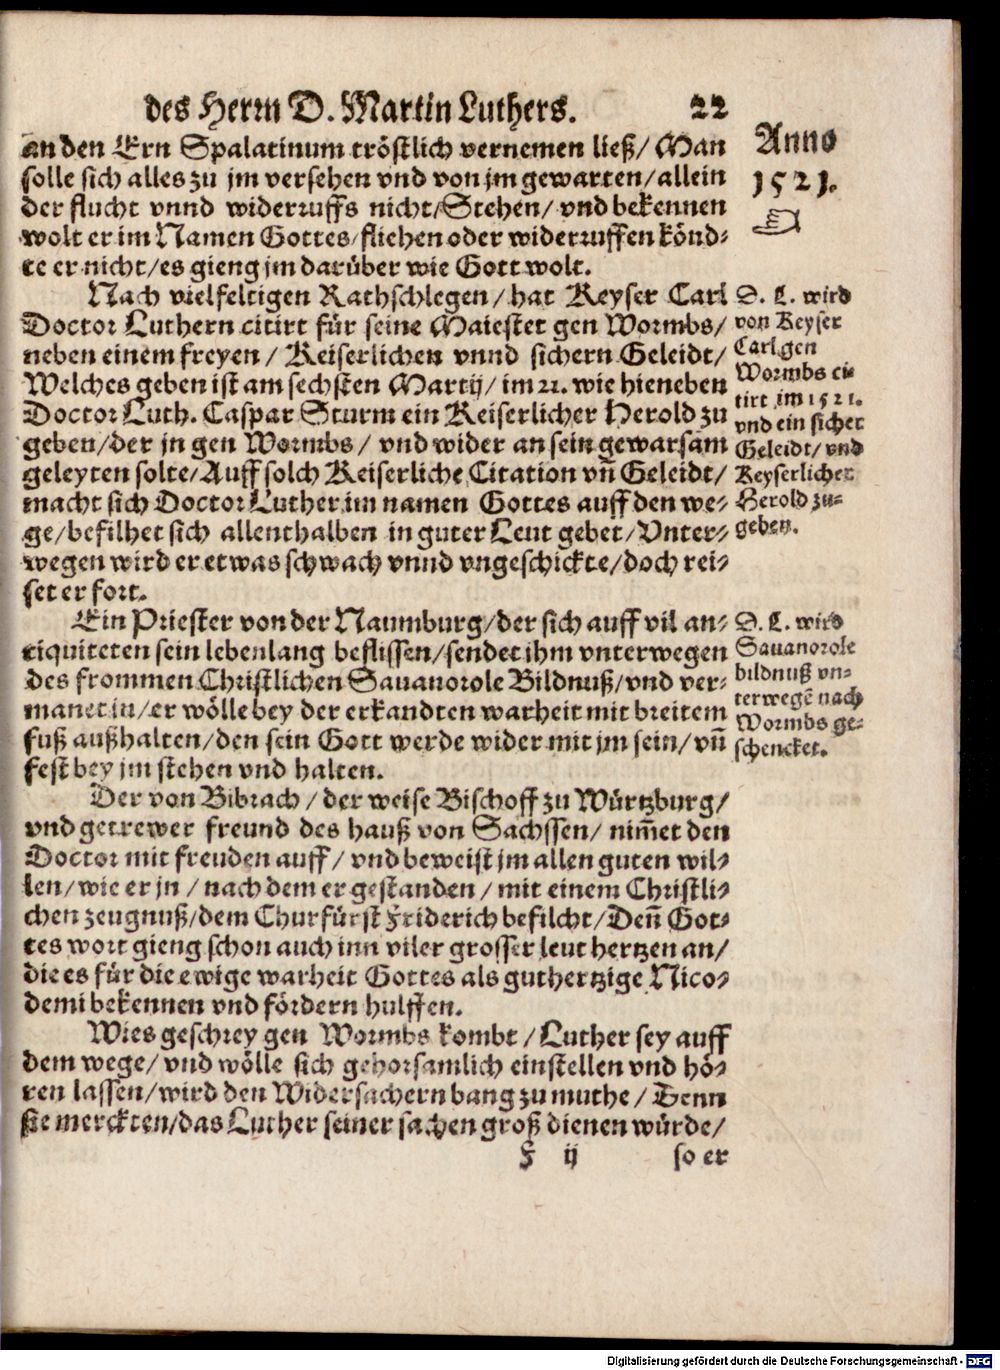 des Herrn D. Martin Luthers. 22
an den Ern Spalatinum tröstlich vernemen ließ/ Man
solle sich alles zu jm versehen vnd von jm gewarten/allein
der flucht vnnd widerruffs nicht/Stehen/ vnd bekennen
wolt er im Namen Gottes/fliehen oder widerruffen könd-
te er nicht/es gieng jm darüber wie Gott wolt.
Nach vielfeltigen Rathschlegen/ hat Keyser Carl
Doctor Luthern citirt für seine Maiestet gen Wormbs/
neben einem freyen/ Keiserlichen vnnd sichern Geleidt/
Welches geben ist am sechsten Martij/ im 21. wie hieneben
Doctor Luth. Caspar Sturm ein Keiserlicher Herold zu
geben/der jn gen Wormbs/ vnd wider an sein gewarsam
geleyten solte/Auff solch Keiserliche Citation vn̄ Geleidt/
macht sich Doctor Luther im namen Gottes auff den we-
ge/befilhet sich allenthalben in guter Leut gebet/Vnter-
wegen wird er etwas schwach vnnd vngeschickte/doch rei-
set er fort.
Ein Priester von der Naumburg/der sich auff vil an-
tiquiteten sein lebenlang beflissen/sendet ihm vnterwegen
des frommen Christlichen Sauanorole Bildnuß/vnd ver-
manet jn/er wölle bey der erkandten warheit mit breitem
fuß außhalten/den sein Gott werde wider mit jm sein/vn̄
fest bey jm stehen vnd halten.
Der von Bibrach/ der weise Bischoff zu Würtzburg/
vnd getrewer freund des hauß von Sachssen/ nim̄et den
Doctor mit freuden auff/ vnd beweist jm allen guten wil-
len/wie er jn/ nach dem er gestanden/ mit einem Christli-
chen zeugnuß/dem Churfürst Friderich befilcht/Den̄ Got-
tes wort gieng schon auch inn viler grosser leut hertzen an/
die es für die ewige warheit Gottes als guthertzige Nico-
demi bekennen vnd fördern hulffen.
Wies geschrey gen Wormbs kombt/ Luther sey auff
dem wege/ vnd wölle sich gehorsamlich einstellen vnd hö-
ren lassen/wird den Widersachern bang zu muthe/ Denn
sie merckten/das Luther seiner sachen groß dienen würde/
F ij so er
Anno
1521.
D. L. wird
von Keyser
Carl gen
Wormbs ci-
tirt im 1521.
vnd ein sicher
Geleidt/ vnd
Keyserlicher
Herold zu-
geben.
D. L. wird
Sauanorole
bildnuß vn-
terwegē nach
Wormbs ge-
schencket.
Digitalisierung gefördert durch die Deutsche Forschungsgemeinschaft - DFG